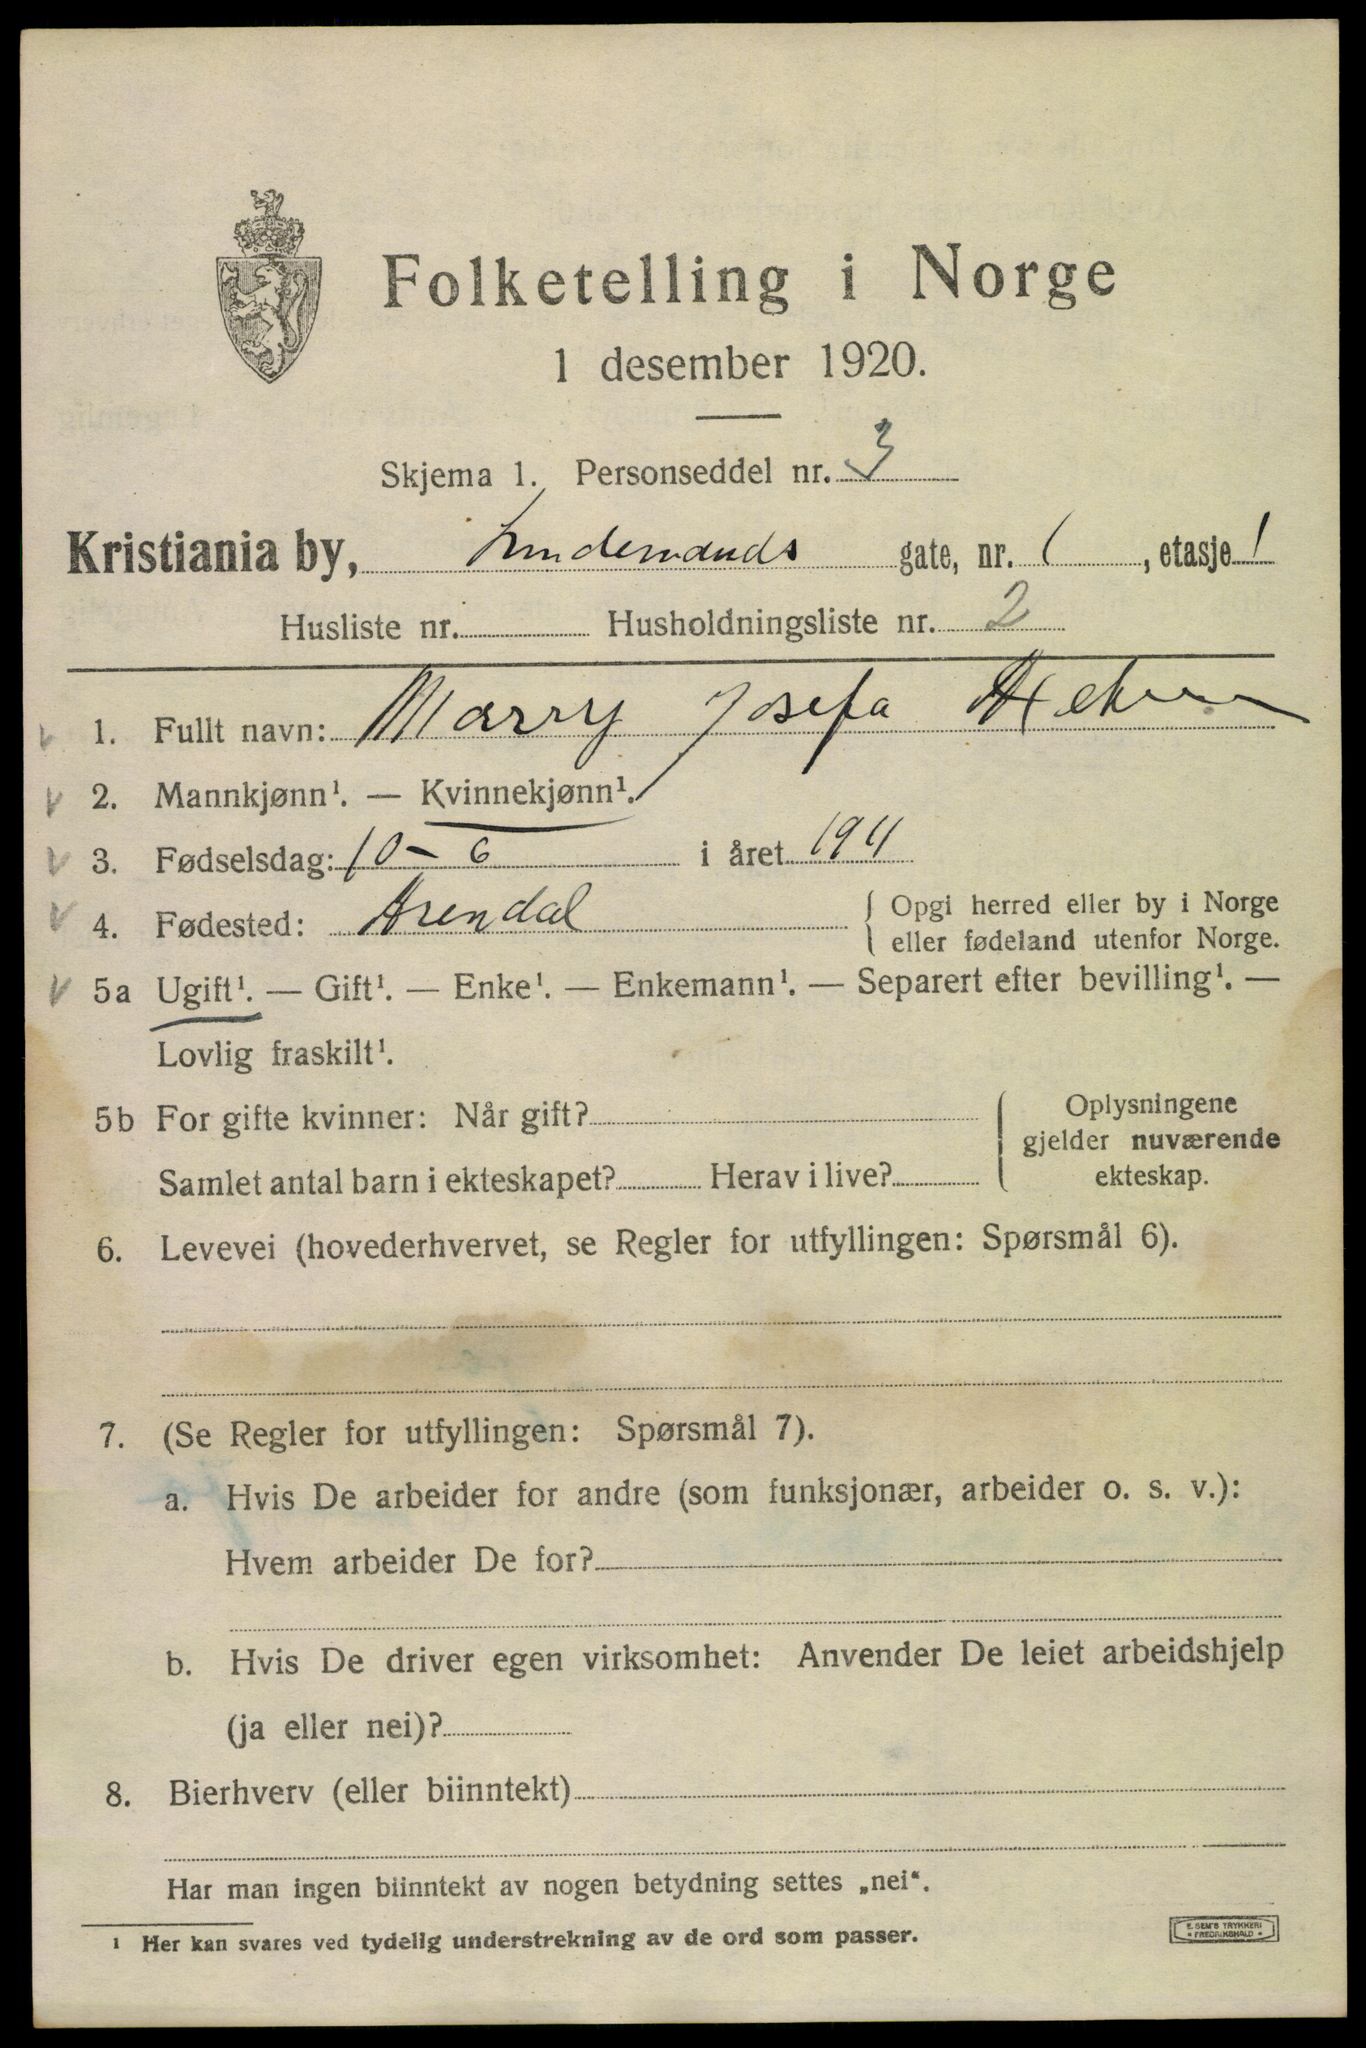 Folketelling i Norge
1 desember 1920.
Skjema 1. Personseddel nr. 3
Kristiania by, Lindemands gate, nr. 1, etasje 1
Husliste nr. Husholdningsliste nr. 2
1. Fullt navn: Marry Josefa
2. Mannkjønn¹. — Kvinnekjønn¹.
3. Fødselsdag: 10 – 6 i året 1911
4. Fødested: Arendal { Opgi herred eller by i Norge
eller fødeland utenfor Norge.
5a Ugift¹. — Gift¹. — Enke¹. — Enkemann¹. — Separert efter bevilling¹. —
Lovlig fraskilt¹.
5b For gifte kvinner: Når gift? { Oplysningene
gjelder nuværende
Samlet antal barn i ekteskapet? Herav i live? ekteskap.
6. Levevei (hovederhvervet, se Regler for utfyllingen: Spørsmål 6).
7. (Se Regler for utfyllingen: Spørsmål 7).
a. Hvis De arbeider for andre (som funksjonær, arbeider o. s. v.):
Hvem arbeider De for?
b. Hvis De driver egen virksomhet: Anvender De leiet arbeidshjelp
(ja eller nei)?
8. Bierhverv (eller biinntekt)
Har man ingen biinntekt av nogen betydning settes „nei“.
¹ Her kan svares ved tydelig understrekning av de ord som passer.
E. SEM'S TRYKKERI
FREDRIKSHALD